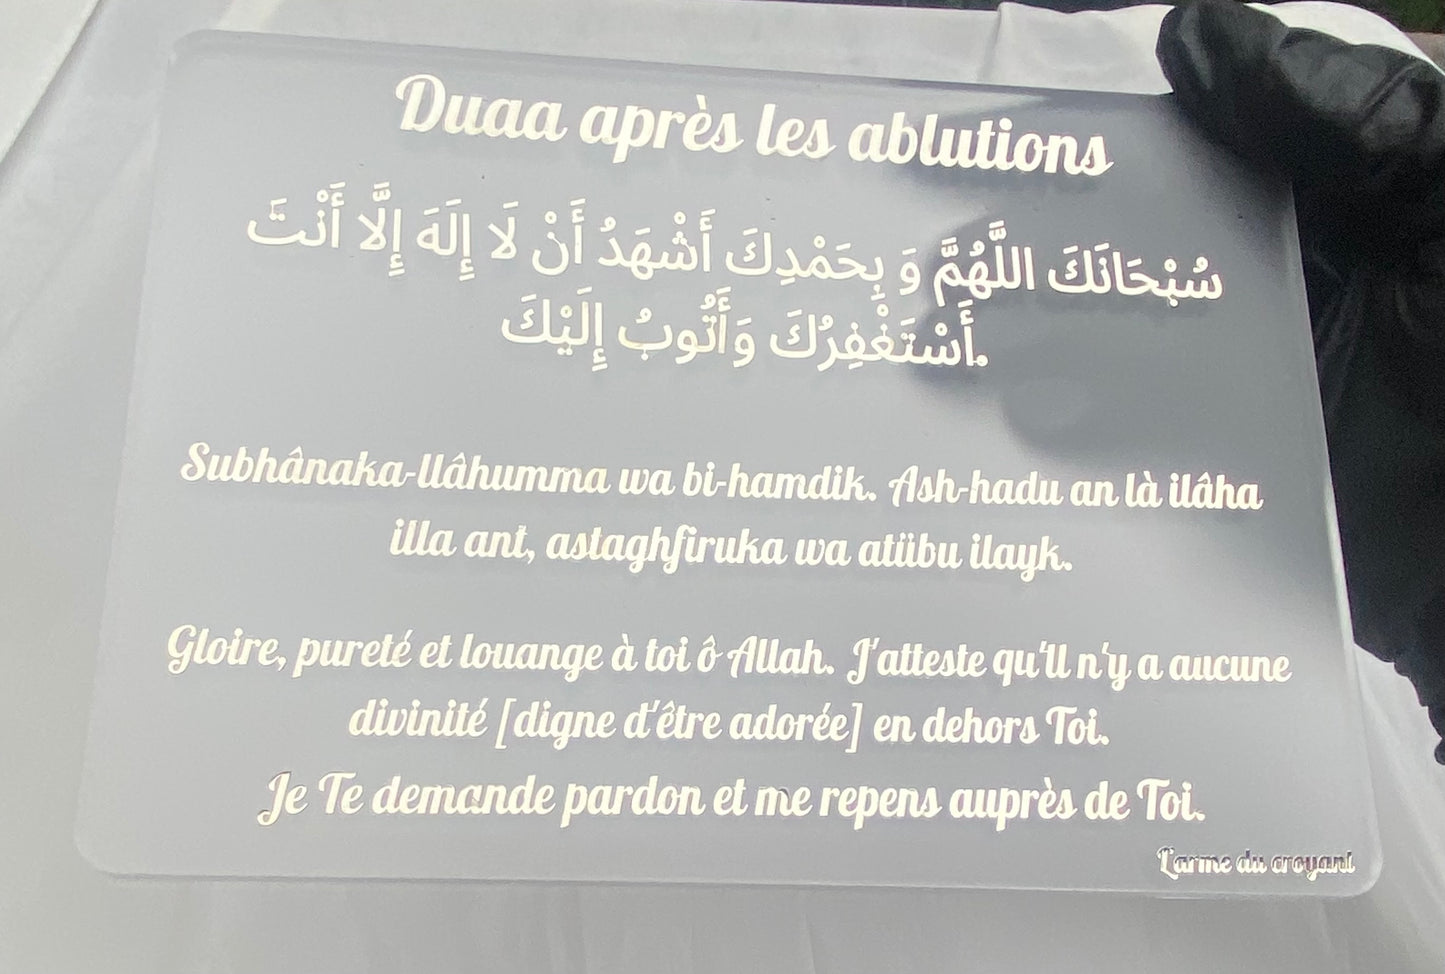 Duaa après les ablutions
سُبْحَانَكَ اللَّهُمَّ وَ بِحَمْدِكَ أَشْهَدُ أَنْ لَا إِلَهَ إِلَّا أَنْتَ
أَسْتَغْفِرُكَ وَأَتُوبُ إِلَيْكَ.
Subhânaka-llâhumma wa bi-hamdik. Ash-hadu an là ilâha
illa ant, astaghfiruka wa atübu ilayk.
Gloire, pureté et louange à toi ô Allah. J'atteste qu'Il n'y a aucune
divinité [digne d'être adorée] en dehors Toi.
Je Te demande pardon et me repens auprès de Toi.
L'arme du croyant